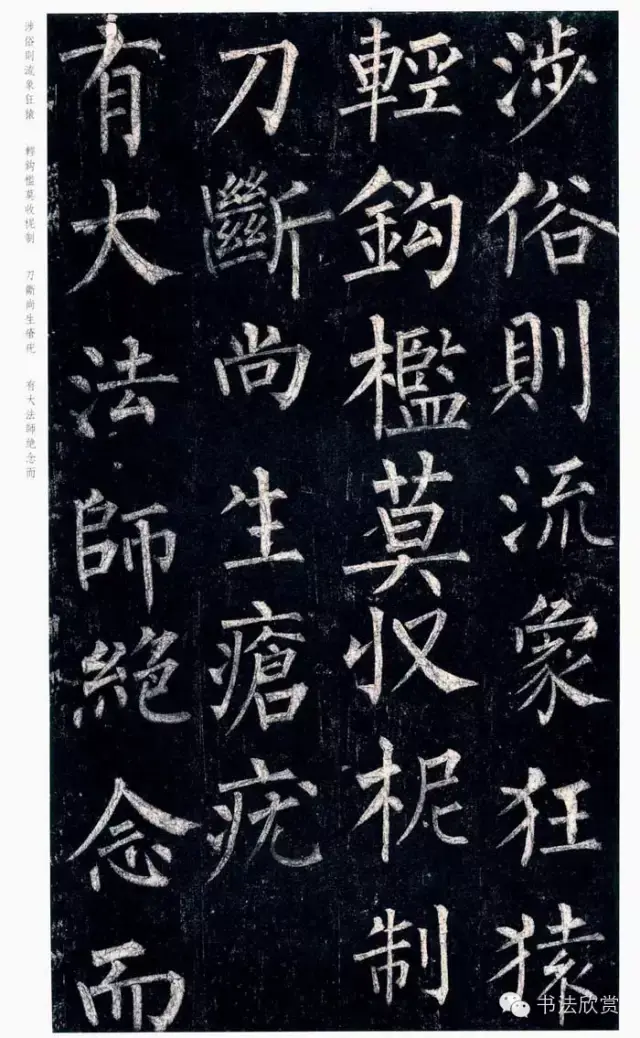 涉俗則流象狂猿
輕鈎檻莫收柅制
刀斷尚生瘡疣
有大法師絕念而
涉俗則流象狂猿 輕鈎檻莫收柅制 刀斷尚生瘡疣 有大法師絕念而
书法欣赏